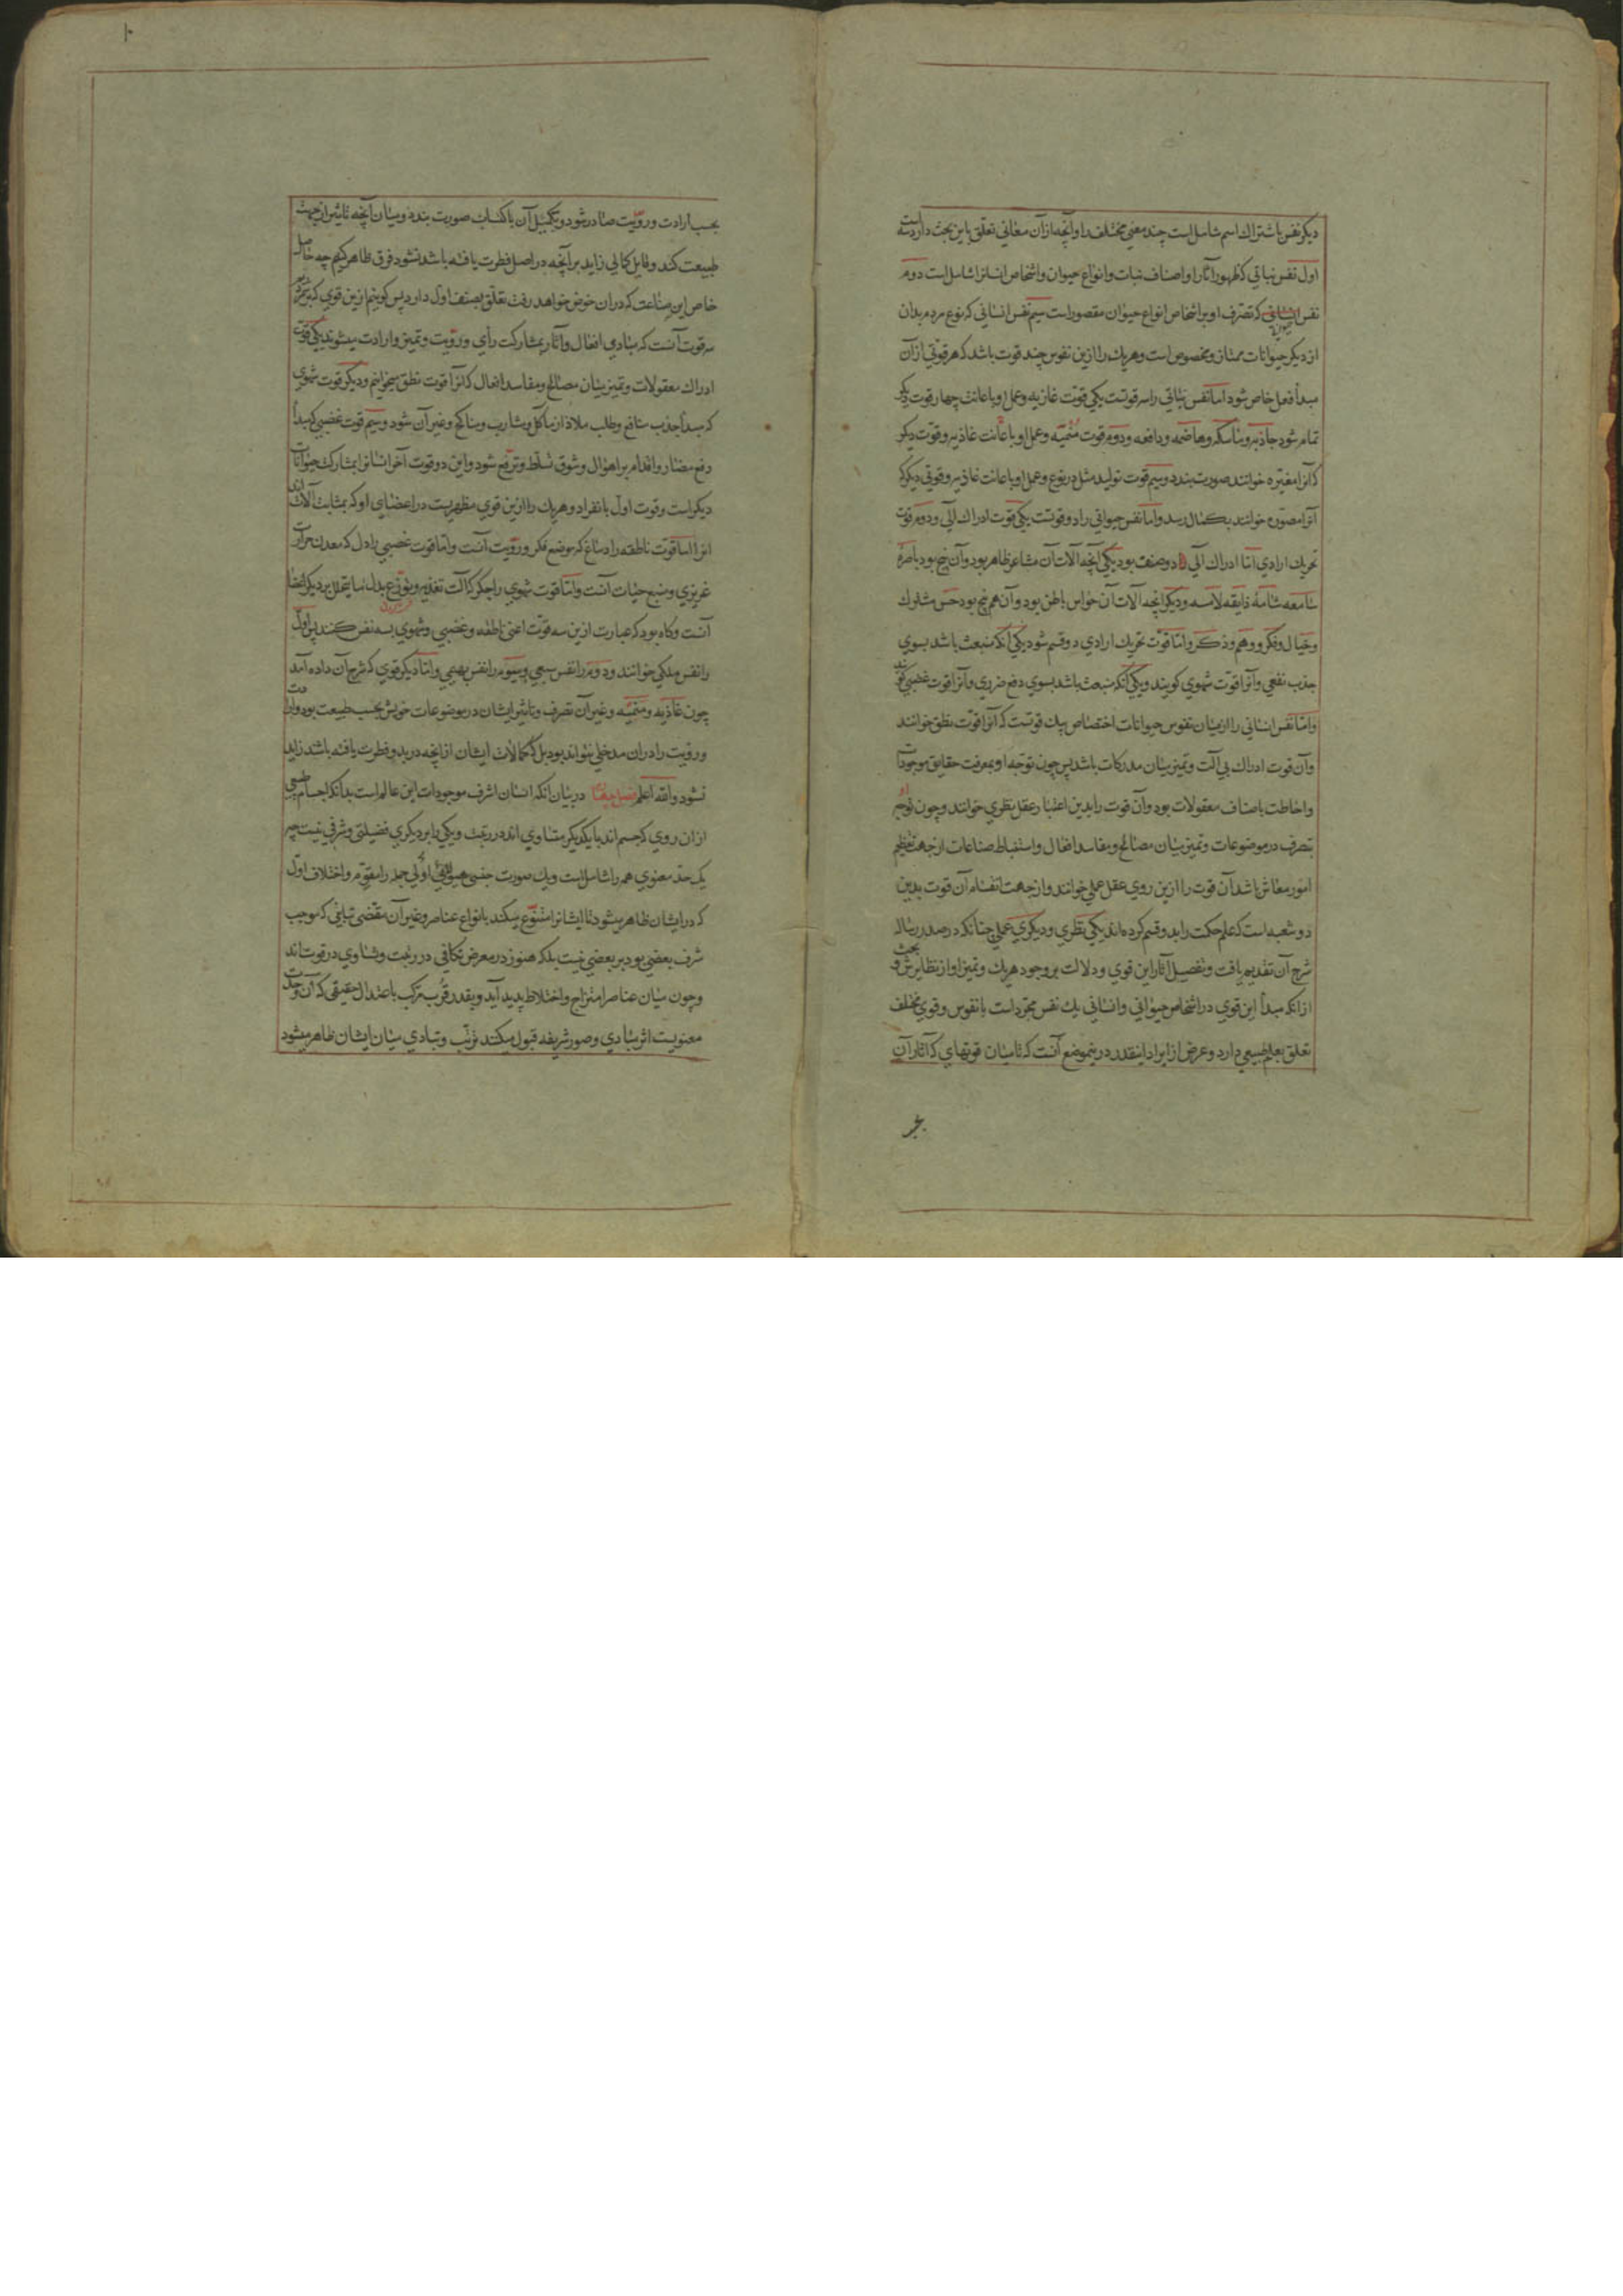 دیگر نفس باشتراك اسم شامل است چند معنی مختلف را و آنچه از آن معانی تعلق باین بحث دارد سه است
اول نفس نباتی که ظهور آثار او اصناف نبات و انواع حیوان و اشخاص انسانرا شامل است دوم
نفس حیوانی که تصرف او بر اشخاص انواع حیوان مقصور است سیم نفس انسانی که نوع مردم بدان
از دیگر حیوانات ممتاز و مخصوص است و هر یك را ازین نفوس چند قوت باشد که هر قوتی از آن
مبدأ فعل خاص شود اما نفس نباتی را سه قوتست یکی قوت غاذیه و عمل او باعانت چهار قوت دیگر
تمام شود جاذبه و ماسکه و هاضمه و دافعه و دوم قوت منمیه و عمل او باعانت غاذیه و قوت دیگر
که آنرا مغیره خوانند صورت بندد و سیم قوت تولید مثل در نوع و عمل او باعانت غاذیه و قوتی دیگر که
آنرا مصوره خوانند بکمال رسد و اما نفس حیوانی را دو قوتست یکی قوت ادراك آلی و دوم قوت
تحریك ارادی اما ادراك آلی دو صنف بود یکی آنچه آلات آن مشاعر ظاهر بود و آن پنج بود باصره
سامعه شامه ذایقه لامسه و دیگر آنچه آلات آن حواس باطن بود و آن هم پنج بود حس مشترك
و خیال و فکر و وهم و ذکر و اما قوت تحریك ارادی دو قسم شود یکی آنکه منبعث باشد بسوی
جذب نفعی و آنرا قوت شهوی گویند و یکی آنکه منبعث باشد بسوی دفع ضرری و آنرا قوت غضبی گویند
و اما نفس انسانی را از میان نفوس حیوانات اختصاص بیك قوتست که آنرا قوت نطق خوانند
و آن قوت ادراك بی آلت و تمیز میان مدرکات باشد پس چون توجه او بمعرفت حقایق موجودات
و احاطت باصناف معقولات بود و آن قوت را بدین اعتبار عقل نظری خوانند و چون توجه او
بتصرف در موضوعات و تمیز میان مصالح و مفاسد افعال و استنباط صناعات از جهت تنظیم
امور معاش باشد آن قوت را ازین روی عقل عملی خوانند و از جهت انقسام آن قوت بدین
دو شعبه است که علم حکمت را بدو قسم کرده اند یکی نظری و دیگری عملی چنانکه در صدر رساله
شرح آن تقدیم یافت و تفصیل آثار این قوی و دلالت بر وجود هر یك و تمیز او از نظایرش و بحث
از آنکه مبدأ این قوی در اشخاص حیوانی و انسانی یك نفس مجرد است یا نفوس و قوی مختلف
تعلق بعلم طبیعی دارد و غرض از ایراد اینقدر درینموضع آنست که تا میان قوتهای که آثار آن
بحسب ارادت و رویت صادر شود و تکمیل آن باکتساب صورت بندد و میان آنچه تاثیر از جهت
طبیعت کند و قابل کمالی زاید بر آنچه در اصل فطرت یافته باشد نشود فرق ظاهر کنیم چه حاصل
خاص این صناعت که در آن خوض خواهد رفت تعلق بصنف اول دارد پس گوییم ازین قوی که برشمردیم
سه قوت آنست که مبادی افعال و آثار بمشارکت رأی و رویت و تمیز و ارادت میشوند یکی قوت
ادراك معقولات و تمیز میان مصالح و مفاسد افعال که آنرا قوت نطق میخوانیم و دیگر قوت شهوی
که مبدأ جذب منافع و طلب ملاذ از مآکل و مشارب و مناکح و غیر آن شود و سیم قوت غضبی که مبدأ
دفع مضار و اقدام بر اهوال و شوق تسلط و ترفع شود و این دو قوت آخر انسانرا بمشارك حیوانات
دیگر است و قوت اول بانفراد و هر یك را ازین قوی مظهریست در اعضای او که بمثابت آلات اند
آنرا اما قوت ناطقه را دماغ که موضع فکر و رویت آنست و اما قوت غضبی را دل که معدن حرارت
غریزی و منبع حیات آنست و اما قوت شهوی را جگر که آلت تغذیه و توزیع بدل ما یتحلل بر دیگر اعضا
آنست و گاه بود که عبارت ازین سه قوت اعنی ناطقه و غضبی و شهوی بسه نفس کنند پس اول
را نفس ملکی خوانند و دوم را نفس سبعی و سیوم را نفس بهیمی و اما دیگر قوی که شرح آن داده آمد
چون غاذیه و منمیه و غیر آن تصرف و تاثیر ایشان در موضوعات خویش بحسب طبیعت بود و ارادت
و رویت را در آن مدخلی نتواند بود بل که کمالات ایشان از آنچه در بدو فطرت یافته باشند زاید
نشود والله اعلم فصل چهارم در بیان آنکه انسان اشرف موجودات این عالم است بدانکه اجسام طبیعی
از آن روی که جسم اند با یکدیگر متساوی اند در رتبت و یکی را بر دیگری فضیلتی و شرفی نیست چه
یك حد معنوی همه را شامل است و یك صورت جنسی هیولی اولی جمله را مقوم و اختلاف اول
که در ایشان ظاهر میشود تا ایشانرا متنوع میکند بانواع عناصر و غیر آن مقتضی تباینی که موجب
شرف بعضی بود بر بعضی نیست بلکه هنوز در معرض تکافی در رتبت و تساوی در قوت اند
و چون میان عناصر امتزاج و اختلاط پدید آید و بقدر قرب مرکب باعتدال حقیقی که آن وحدت
معنویست اثر مبادی و صور شریفه قبول میکند ترتب و تبادی میان ایشان ظاهر میشود